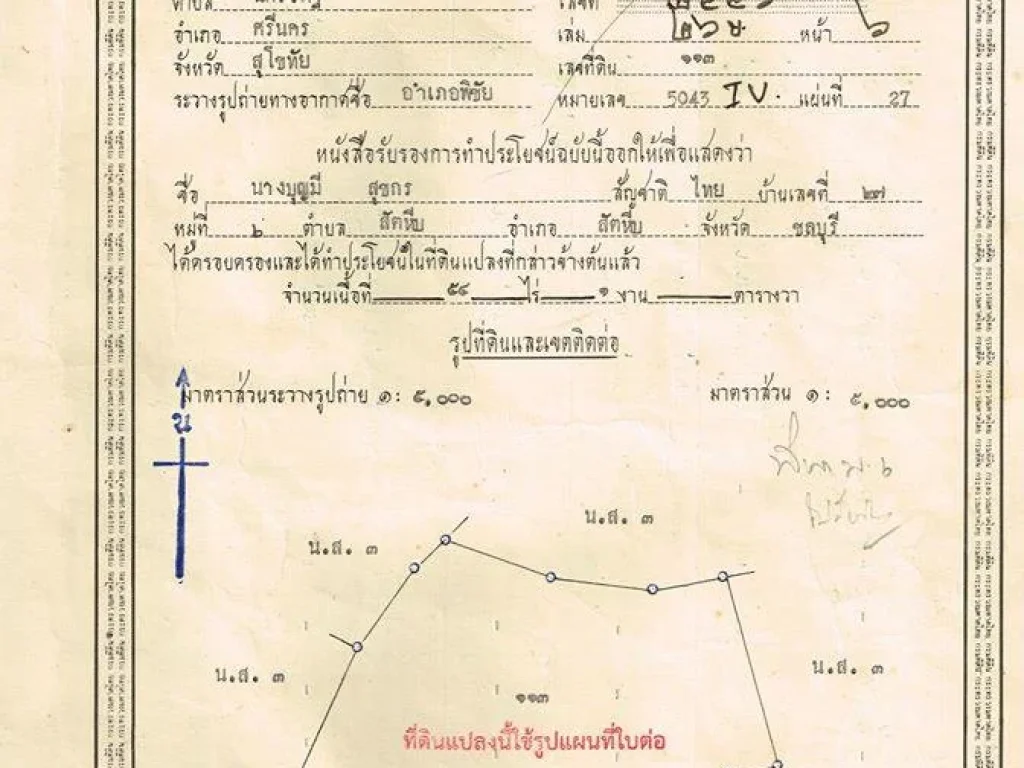 ตำบล เลขที่
อำเภอ ศรีนคร เล่ม ๒๖ษ หน้า ๖
จังหวัด สุโขทัย เลขที่ดิน ๑๑๓
ระวางรูปถ่ายทางอากาศชื่อ อำเภอพิชัย หมายเลข 5043 IV. แผ่นที่ 27
หนังสือรับรองการทำประโยชน์ฉบับนี้ออกให้เพื่อแสดงว่า
ชื่อ นางบุญมี สุขกร สัญชาติ ไทย บ้านเลขที่ ๒๗
หมู่ที่ ๖ ตำบล สัตหีบ อำเภอ สัตหีบ จังหวัด ชลบุรี
ได้ครอบครองและได้ทำประโยชน์ในที่ดินแปลงที่กล่าวข้างต้นแล้ว
จำนวนเนื้อที่ ๕๔ ไร่ ๑ งาน ตารางวา
รูปที่ดินและเขตติดต่อ
มาตราส่วนระวางรูปถ่าย ๑: ๕,๐๐๐ มาตราส่วน ๑: ๕,๐๐๐
น
น.ส. ๓
น.ส. ๓
น.ส. ๓ น.ส. ๓
๑๑๓
ที่ดินแปลงนี้ใช้รูปแผนที่ใบต่อ